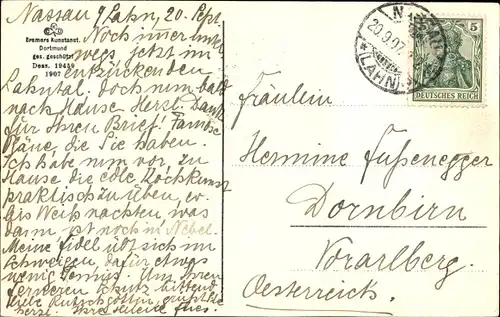 Nassau a/Lahn, 20. Sept.
Noch immer unter-
wegs, jetzt im
entzückenden
Lahntal. doch nun bald
nach Hause. Herzl. Dank
für Ihren Brief! Famose
Pläne, die Sie haben.
Ich habe nun vor, zu
Hause die edle Kochkunst
praktisch zu üben, ev.
bis Weihnachten, was
dann ist noch in Nebel.
Meine Fidel übt sich im
Schweigen, dafür etwas
wenig Tennis. Um Ihren
ferneren Schutz bittend
liebe Rutschgöttin, grüßt Sie
herzl. Ihre
Bremers Kunstanst.
Dortmund
ges. geschützt
Dess. 19459
1907
NASSAU
20.9.07
*(LAHN)
5
DEUTSCHES REICH
Fräulein
Hermine Fußenegger
Dornbirn
Vorarlberg.
Oesterreich.